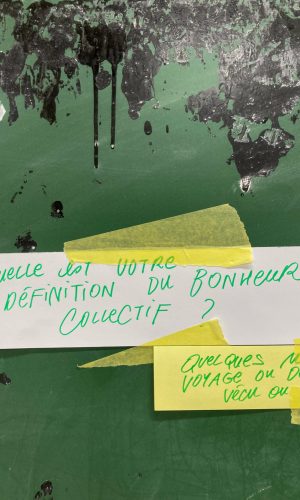 uelle est votre
définition du bonheur
collectif ?
Quelques
voyage ou d
vécu ou